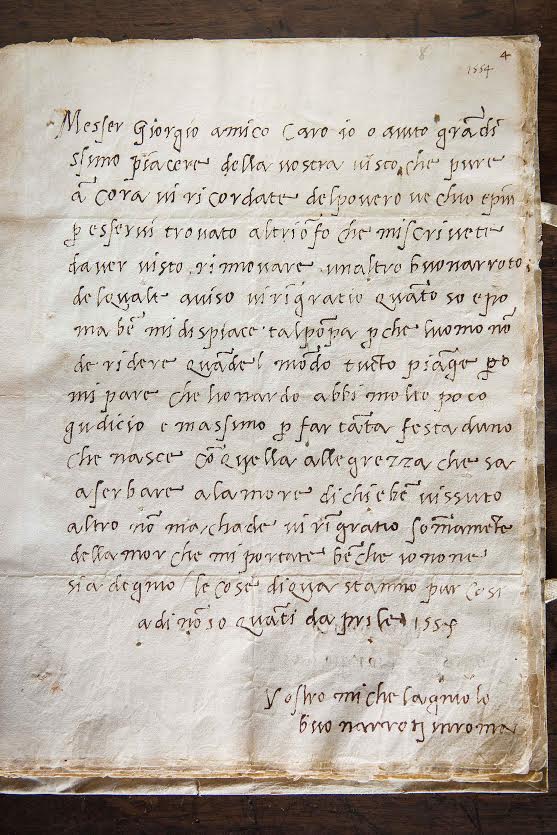 8 4
1554
Messer Giorgio amico caro io o auto grādi
ssimo piacere della vostra visto che pure
ācora vi ricordate del povero vechio e piu
p esservi trovato al triōfo che mi scrivete
d aver visto rinnovare un altro buonarroto
del quale aviso vi rīgratio quāto so e po
ma bē mi dispiace tal pōpa p che l uomo nō
de ridere quāde l mōdo tucto piāge po
mi pare che lionardo abbi molto poco
iudicio e massimo p far tāta festa d uno
che nasce cō quella allegrezza che s a
a serbare a la morte di chi è bē vissuto
altro nō m achade vi rīgratio sommamēte
dell amor che mi portate bē che io no ne
sia degnio le cose di qua stanno pur cosi
a di nō so quāti d aprile 1554
Vostro michelagniolo
buonarroti in roma